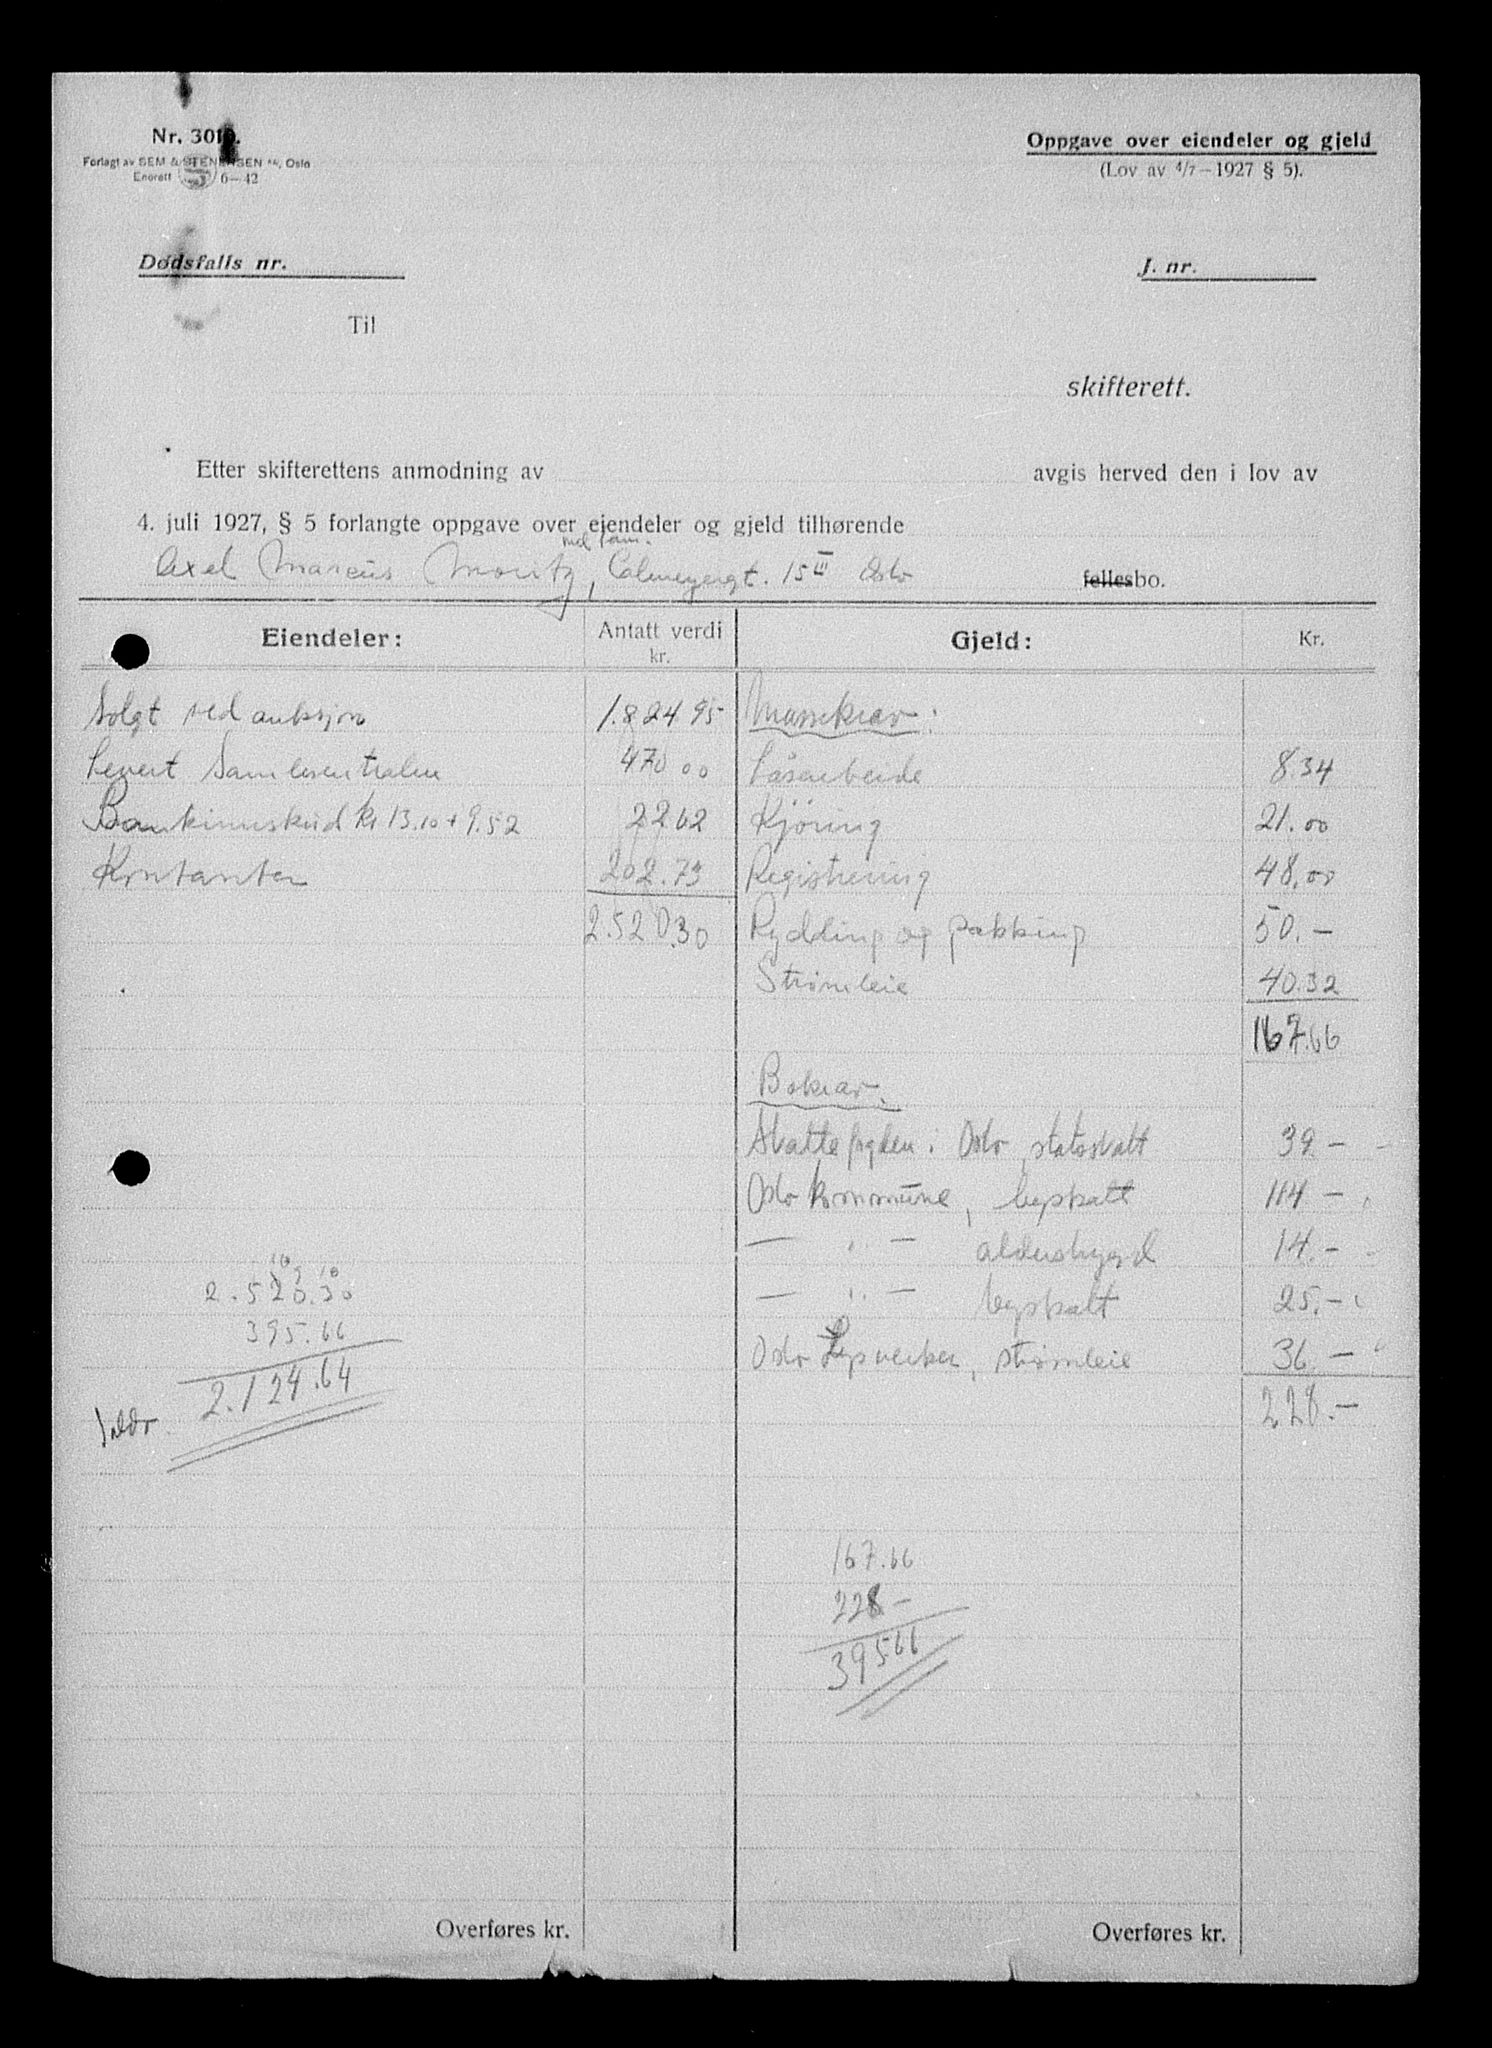 Nr. 3010.
Forlagt av SEM & STENERSEN A/S, Oslo
Enerett S 6—42
Oppgave over eiendeler og gjeld
(Lov av 4/7—1927 § 5).
Dødsfalls nr.
J. nr.
Til
skifterett.
Etter skifterettens anmodning av avgis herved den i lov av
4. juli 1927, § 5 forlangte oppgave over eiendeler og gjeld tilhørende
med fam.
Axel Marcus Moritz, Calmeyergt. 15 III Oslo fellesbo.
Eiendeler: Antatt verdi kr. Gjeld: Kr.
Solgt ved auksjon 1.824 95 Massekrav:
Levert Samlesentralen 470 00 Låsarbeide 8.34
Bankinnskud kr 13.10 + 9.52 22 62 Kjøring 21.00
Kontanter 202.73 Registrering 48.00
2.520.30 Rydding og pakking 50.—
Strømleie 40.32
167.66
Bokrav.
Skattefogden i Oslo, statsskatt 39 —
Oslo kommune, byskatt 114 —
— " — alderstrygd 14.—
— " — byskatt 25.—
Oslo Lysverker, strømleie 36.—
228.—
10 9 10
2.520.30
395.66
2.124.64
Saldo.
167.66
228 —
395 66
Overføres kr. Overføres kr.